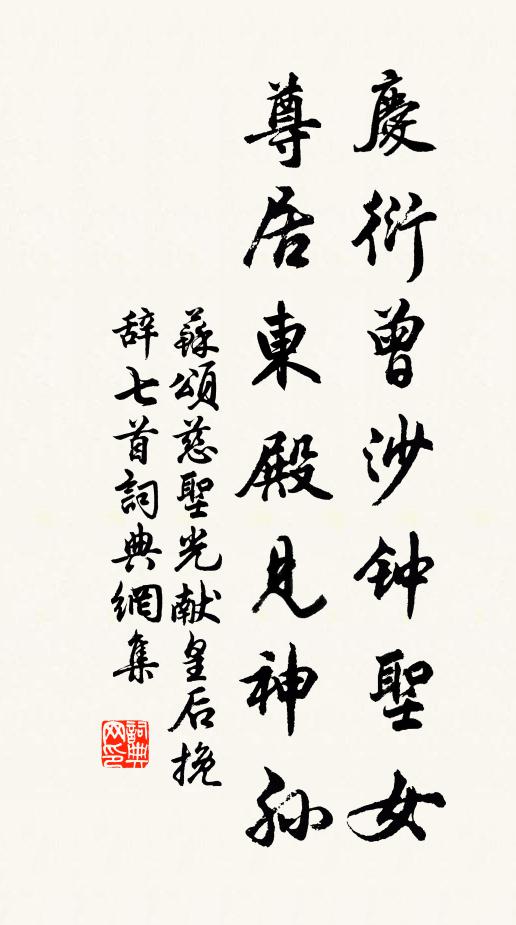 慶衍曾沙钟聖女
尊居東殿見神孙
蘇頌慈聖光献皇后挽
辞七首詞典網集
詞典
网印